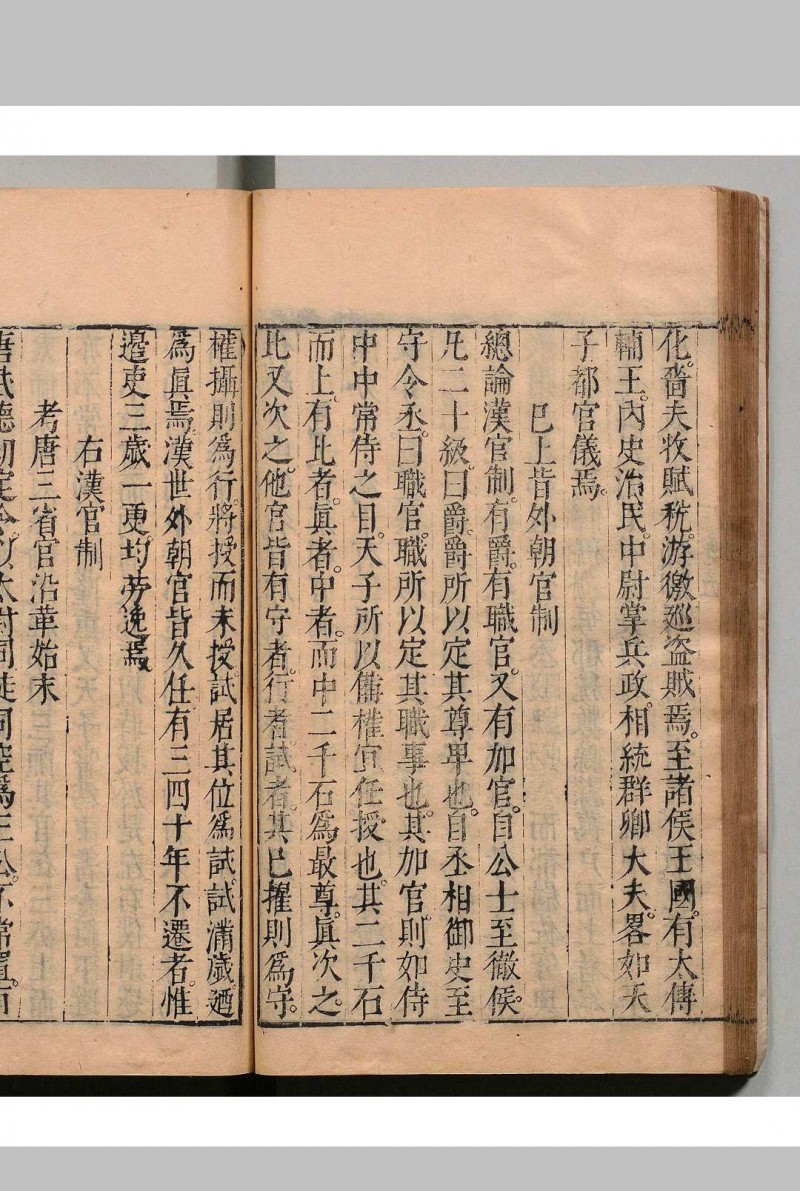 化。嗇夫收賦稅。游徼巡盜賊焉。至諸侯王國。有太傅
輔王。內史治民。中尉掌兵政。相統群卿大夫。畧如天
子都官儀焉。
已上皆外朝官制
總論漢官制。有爵。有職官。又有加官。自公士至徹侯。
凡二十級曰爵。爵所以定其尊卑也。自丞相御史至
守令丞。曰職官。職所以定其職事也。其加官則如侍
中中常侍之目。天子所以備權宜任授也。其二千石
而上。有比者。真者。中者。而中二千石為最尊。真次之。
比又次之。他官皆有守者。行者。試者。其已擢則為守。
權攝則為行。將授而未授。試居其位為試。試滿歲迺
為真焉。漢世外朝官皆久任。有三四十年不遷者。惟
邊吏三歲一更。均勞逸焉。
右漢官制
考唐三省官沿革始末